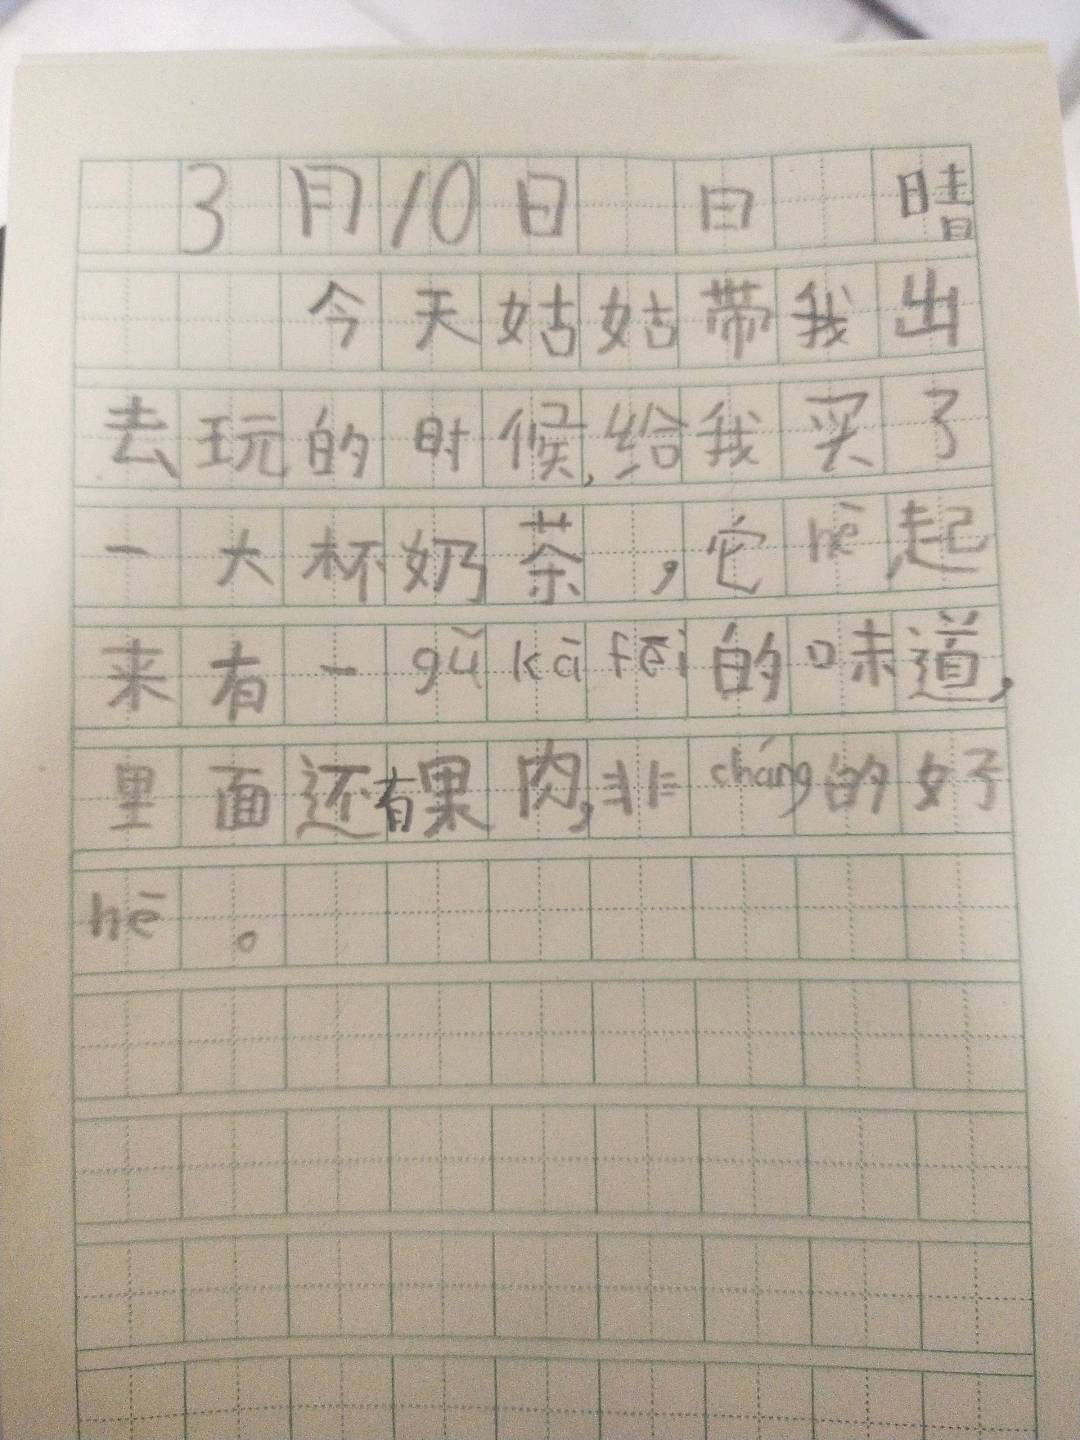 3月10日 日 晴
今天姑姑带我出
去玩的时候,给我买了
一大杯奶茶,它hē起
来有一gǔkāfēi的味道,
里面还有果肉,非cháng的好
hē。